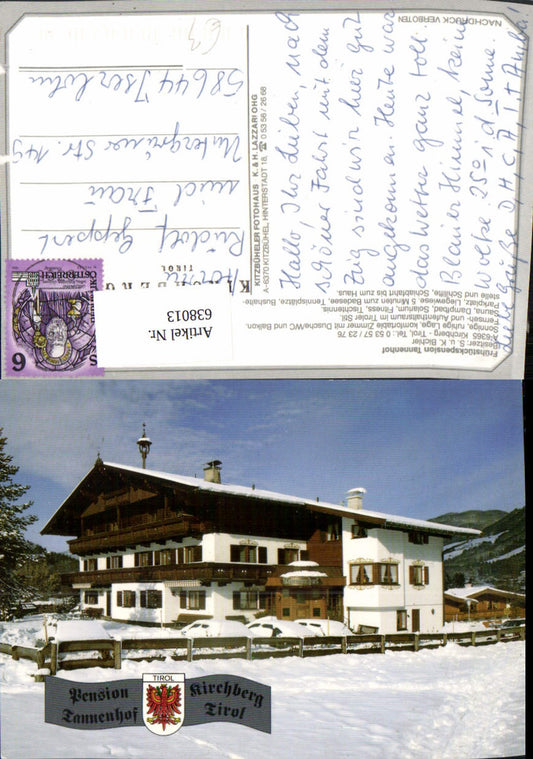 NACHDRUCK VERBOTEN
Hallo Ihr Lieben, nach
schöner Fahrt mit dem
Zug sind wir hier gut
angekommen. Heute war
das Wetter ganz toll.
Blauer Himmel, keine
Wolke 25° i.d. Sonne.
Liebe Grüße
KITZBÜHELER FOTOHAUS K. & H. LAZZARI OHG
A-6370 KITZBÜHEL, HINTERSTADT 18, ☎ 0 53 56 / 26 68
TIROL
Rudolf Geppert
und Frau
Untergrüner Str. 149
58644 Iserlohn
Artikel Nr.
638013
REPUBLIK
ÖSTERREICH
6
Frühstückspension Tannenhof
Besitzer: S. u. K. Bichler
A-6365 Kirchberg - Tirol, Tel.: 0 53 57 / 23 76
Sonnige, ruhige Lage, komfortable Zimmer mit Dusche/WC und Balkon.
Fernseh- und Aufenthaltsraum im Tiroler Stil.
Sauna, Dampfbad, Solarium, Fitness, Tischtennis,
Parkplatz, Liegewiese, 5 Minuten zum Badesee, Tennisplätze, Bushalte-
stelle und Schilift, Schiabfahrt bis zum Haus.
Pension
Tannenhof
TIROL
Kirchberg
Tirol